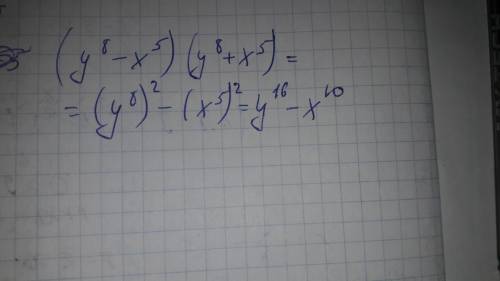 (y⁸ - x⁵)(y⁸ + x⁵) =
= (y⁸)² - (x⁵)² = y¹⁶ - x¹⁰